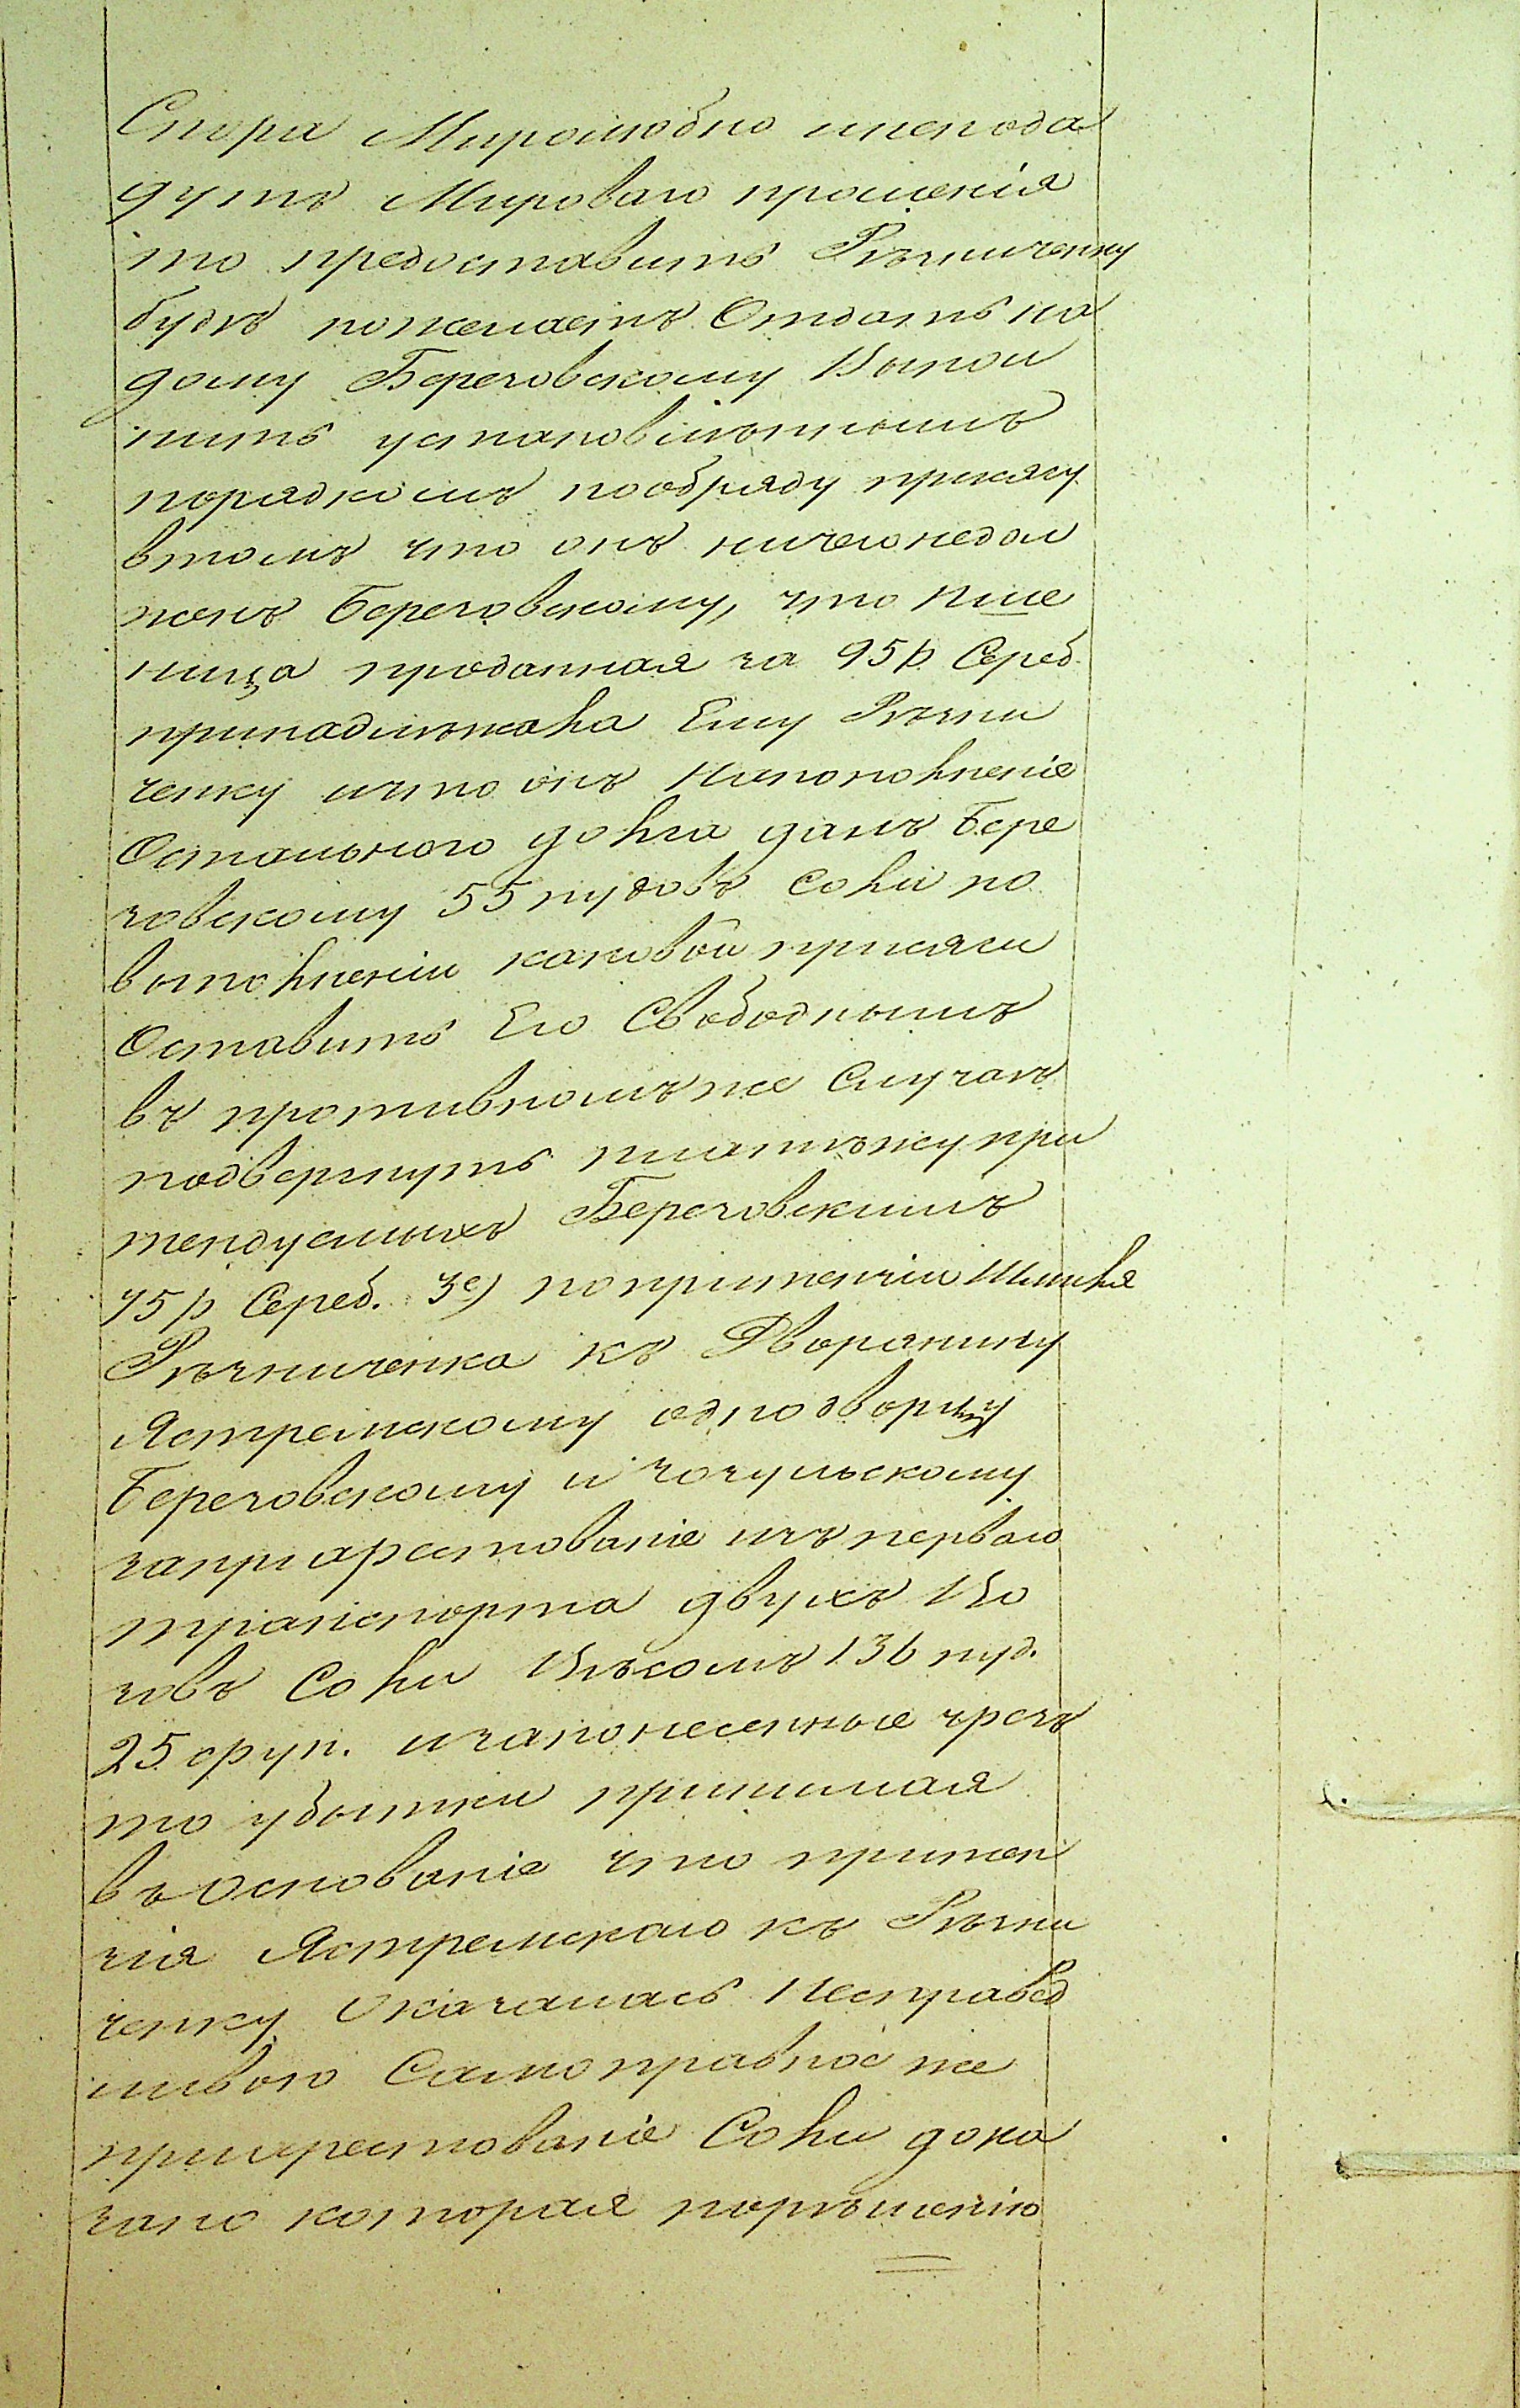 Спора Миролюбно инепода
дутъ Мироваго прошенія
то предоставить Рѣзниченку
будѣ пожелаетъ Отдать на
дому Березовскому Выпол
нить установлѣннымъ
порядкомъ пообряду присягу
втомъ что онъ ничегонедол
женъ Березовскому, что пше
ница проданная за 95 р. Сереб.
принадлѣжала Ему Рѣзни
ченку ичто онъ Напополненіе
Остальнаго долга далъ Бере
зовскому 55 пудовъ Соли по
выполненіи каковой присяги
Оставить Его Свободнымъ
въ противномъже Случаѣ
подвергнуть платѣжу при
тендуемыхъ Березовскимъ
75 р Сереб. 3е) попритензіи Шмиля
Рѣзниченка къ Дворянину
Ястремскому однодворцу
Березовскому и Чочульскому
заприарестованіе изъ перваго
транспорта двухъ Во
зовъ Соли Вѣсомъ 136 пуд.
25 фун. изапонесенные чрезъ
то убытки принимая
въ Основаніе что притен
зія Ястремскаго къ Рѣзни
ченку Оказалась Несправед
ливою Самоправное же
приарестованіе Соли дока
зано которая порѣшенію